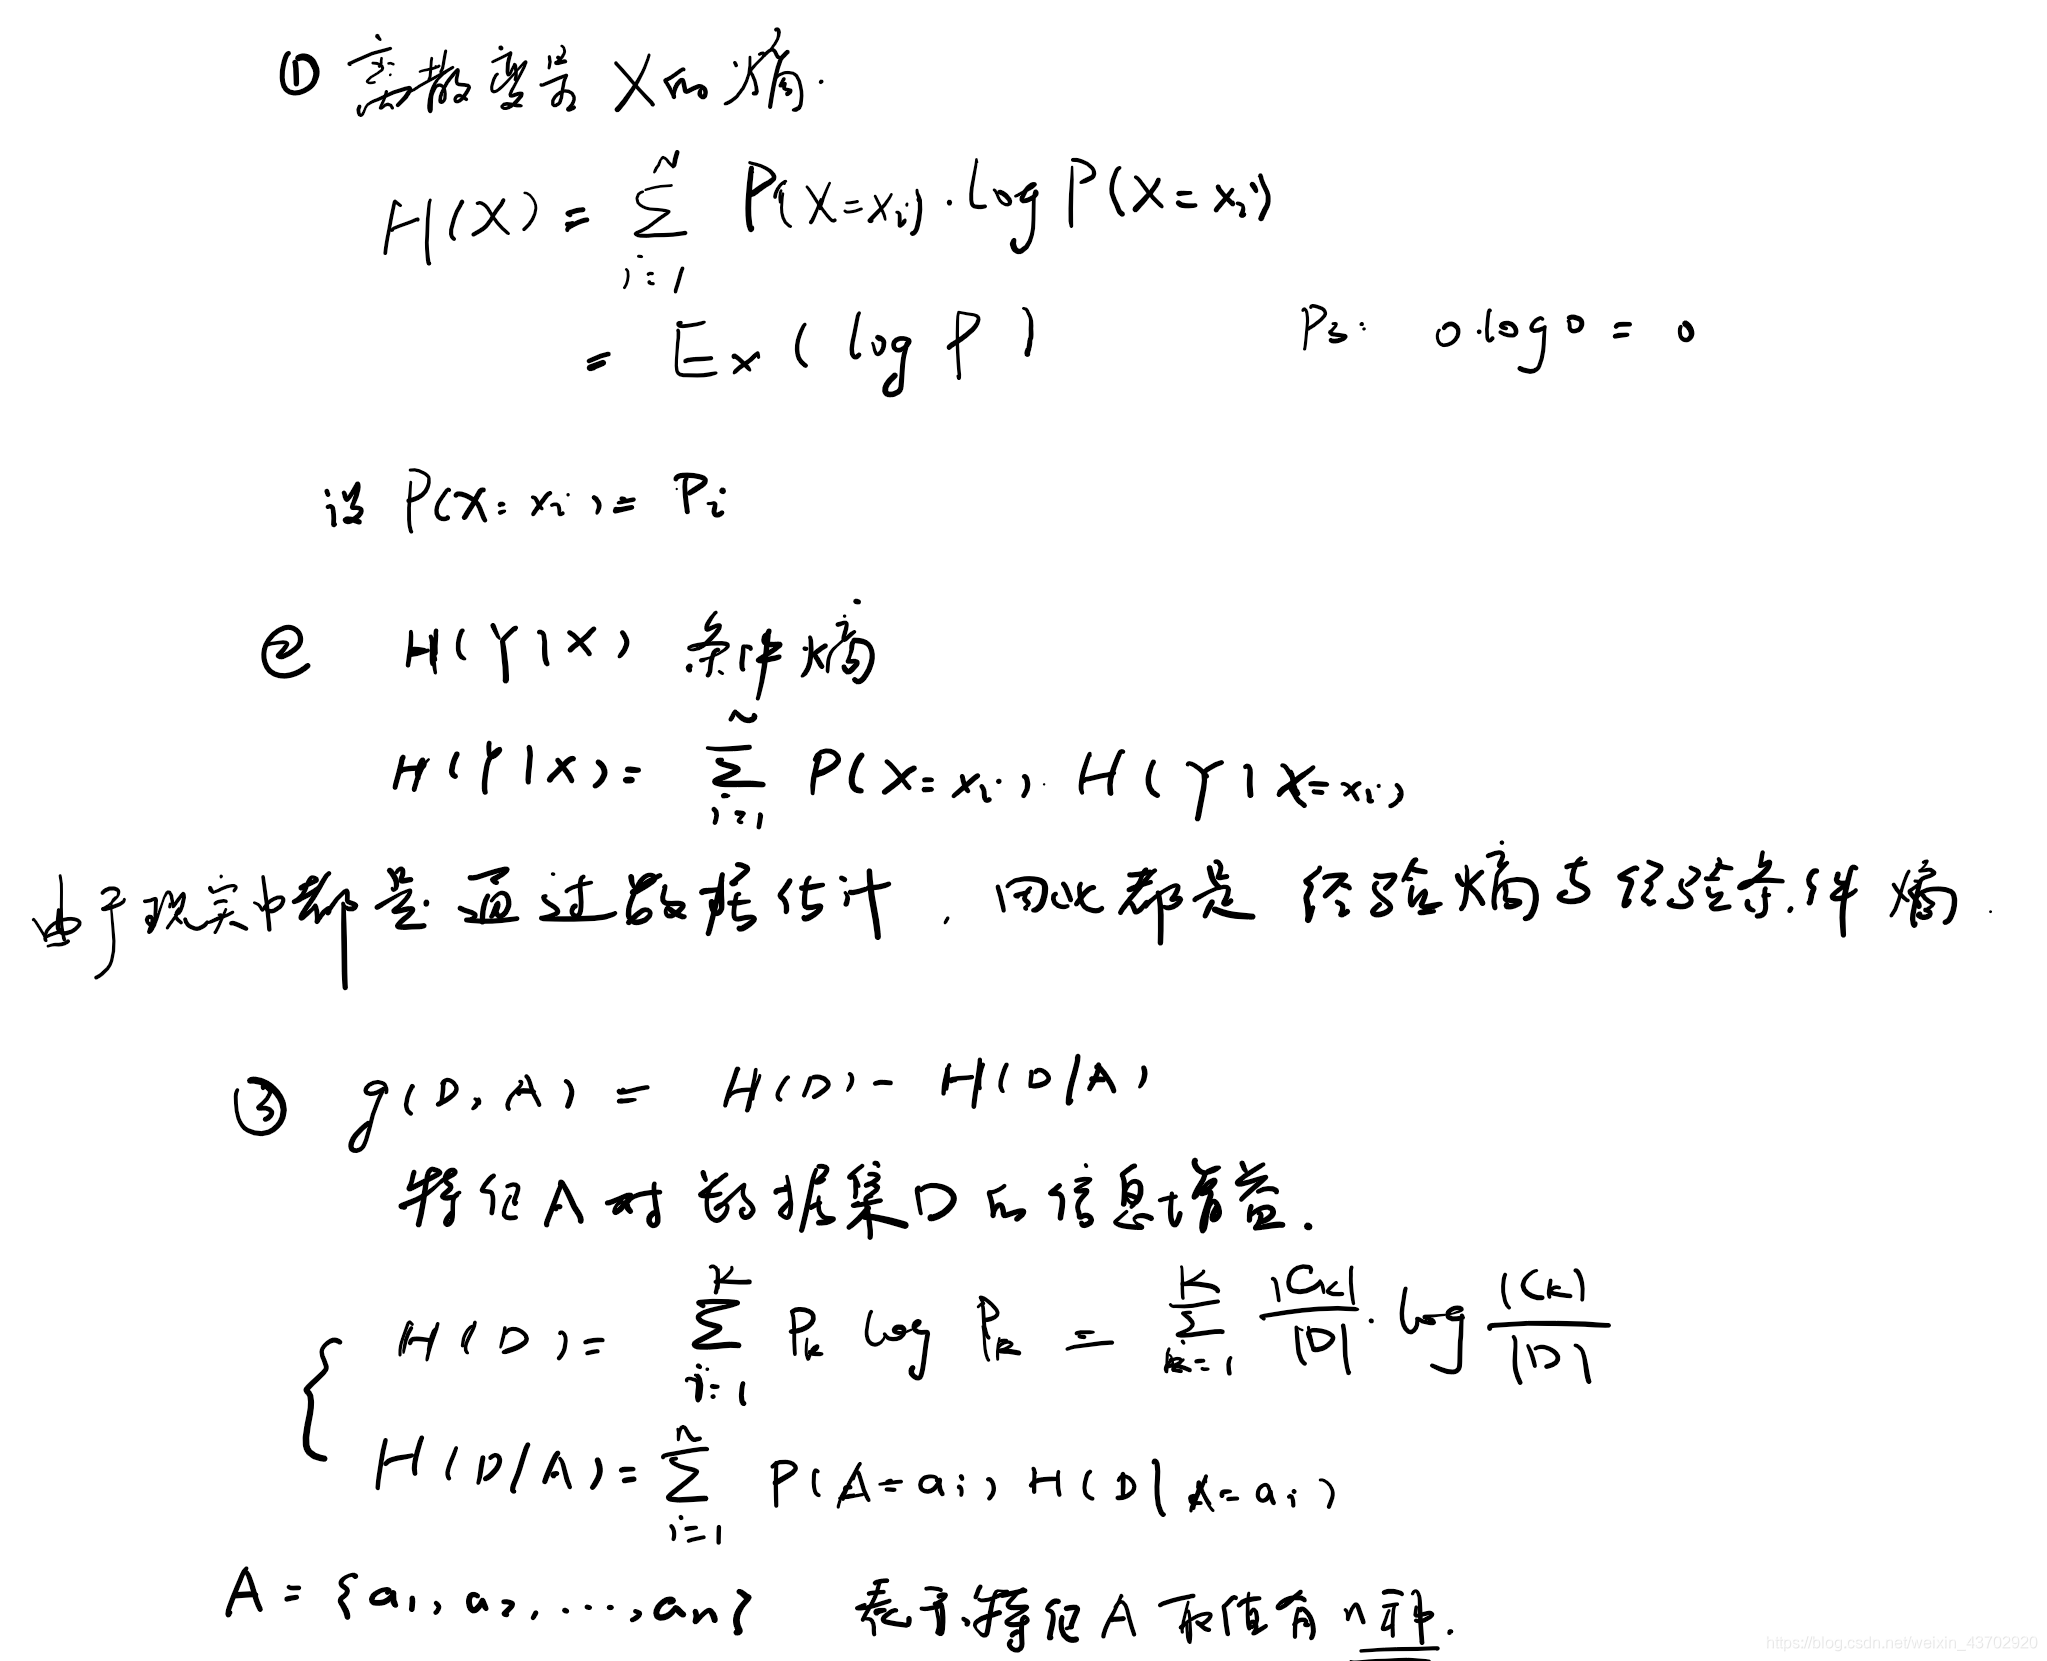 ① 离散变量 X的熵.
H(X) = ∑_{i=1}^{n} P(X=x_i)·log P(X=x_i)
= E_x(log P) PS: 0·log0 = 0
设 P(X=x_i) = P_i
② H(Y|X) 条件熵
H(Y|X) = ∑_{i=1}^{n} P(X=x_i)·H(Y|X=x_i)
由于现实中都是通过数据估计，因此都是 经验熵与经验条件熵.
③ g(D,A) = H(D) - H(D/A)
特征A对数据集D的信息增益.
H(D) = ∑_{i=1}^{K} P_k log P_k = ∑_{k=1}^{K} |C_k|/|D|·log |C_k|/|D|
H(D/A) = ∑_{i=1}^{n} P(A=a_i) H(D|A=a_i)
A = {a_1, a_2, ..., a_n} 表示特征A取值有n种.
https://blog.csdn.net/weixin_43702920